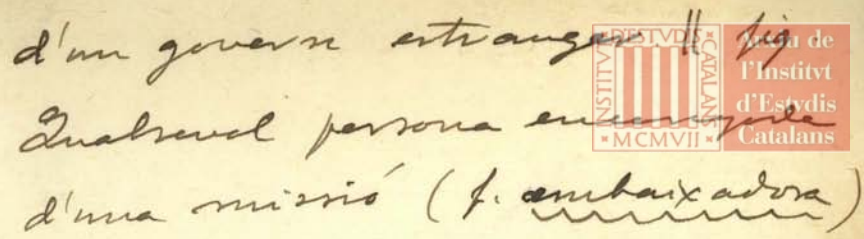 d'un govern estranger. || fig
Qualsevol persona encarregada
d'una missió (f. ambaixadora)
INSTITVT D'ESTVDIS CATALANS
MCMVII
Arxiu de
l'Institvt
d'Estvdis
Catalans